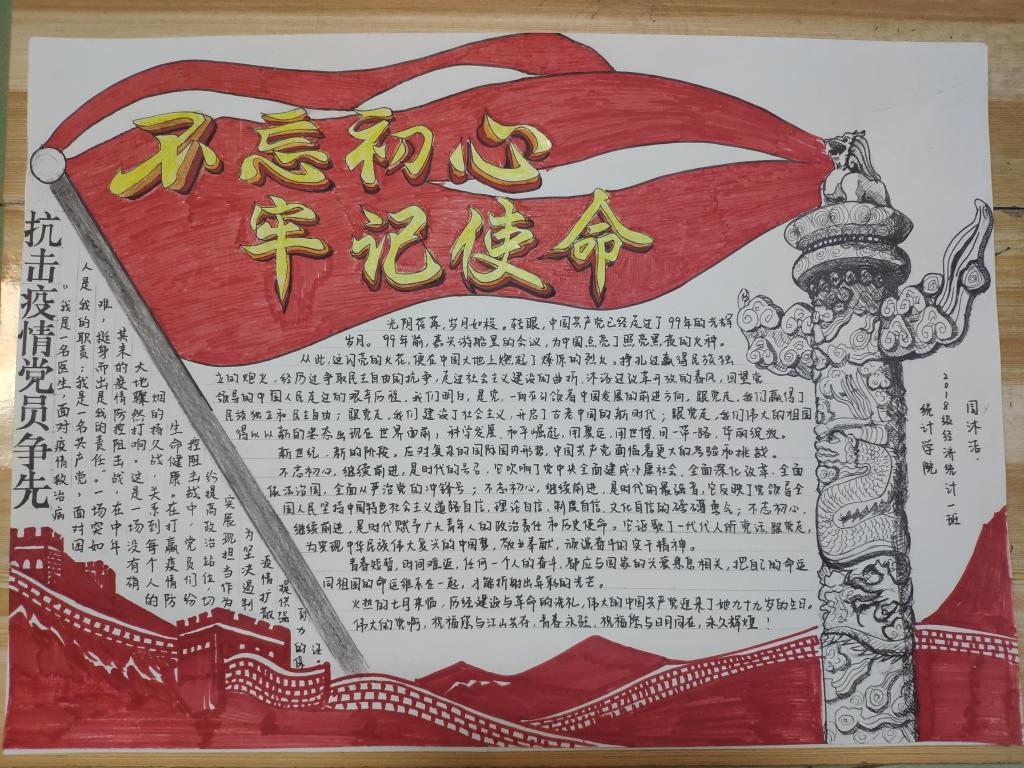 不忘初心
牢记使命
抗击疫情党员争先
光阴荏苒，岁月如梭。转眼，中国共产党已经走过了99年的光辉
岁月。99年前，嘉兴游船里的会议，为中国点亮了照亮黑夜的火种。
从此，这闪亮的火花，便在中国大地上燃起了燎原的烈火。挣扎过赢得民族独
立的炮火，经历过争取民主自由的抗争，走过社会主义建设的曲折，沐浴过改革开放的春风，回望党
领导的中国人民走过的艰辛历程，我们明白，是党，一向在引领着中国发展的前进方向。跟党走，我们赢得了
民族独立和民主自由；跟党走，我们建设了社会主义，开启了古老中国的新时代；跟党走，我们伟大的祖国
得以以新的姿态出现在世界面前，科学发展、和平崛起，闭奥运，闭世博，间一带一路，华丽绽放。
新世纪，新的阶段。应对复杂的国际国内形势，中国共产党面临着更大的考验和挑战。
不忘初心，继续前进，是时代的号召，它吹响了党中央全面建成小康社会、全面深化改革、全面
依法治国，全面从严治党的冲锋号；不忘初心，继续前进，是时代的最强音，它反映了党领导全
国人民坚持中国特色社会主义道路自信，理论自信，制度自信，文化自信的磅礴意气；不忘初心，
继续前进，是时代赋予广大青年人的政治责任和历史使命。它汲取了一代代人听党话、跟党走，
为实现中华民族伟大复兴的中国梦，敬业奉献，诚温奋斗的实干精神。
青春短暂，时间难返，任何一个人的奋斗，都应与国家的兴衰息息相关，把自己的命运
同祖国的命运维系在一起，才能折射出异彩的光芒。
火热的七月来临，历经建设与革命的洗礼，伟大的中国共产党迎来了她九十九岁的生日。
伟大的党啊，祝福您与江山共存，青春永驻，祝福您与日月同在，永久辉煌！
“我是一名医生，面对疫情救治病
人是我的职责；我是一名共产党，面对困
难，挺身而出是我的责任。”一场突如
其来的疫情防控阻击战，在中华
大地骤然打响。这是一场没有硝
烟的持久战，关系到每个人的
生命健康。在打赢疫情防
控阻击战中，党员们纷
纷提高政治站位，切
实展现担当作为
为坚决遏制
疫情扩散
提供强
有力的保
证。
周沐洁
2018级经济统计一班
统计学院